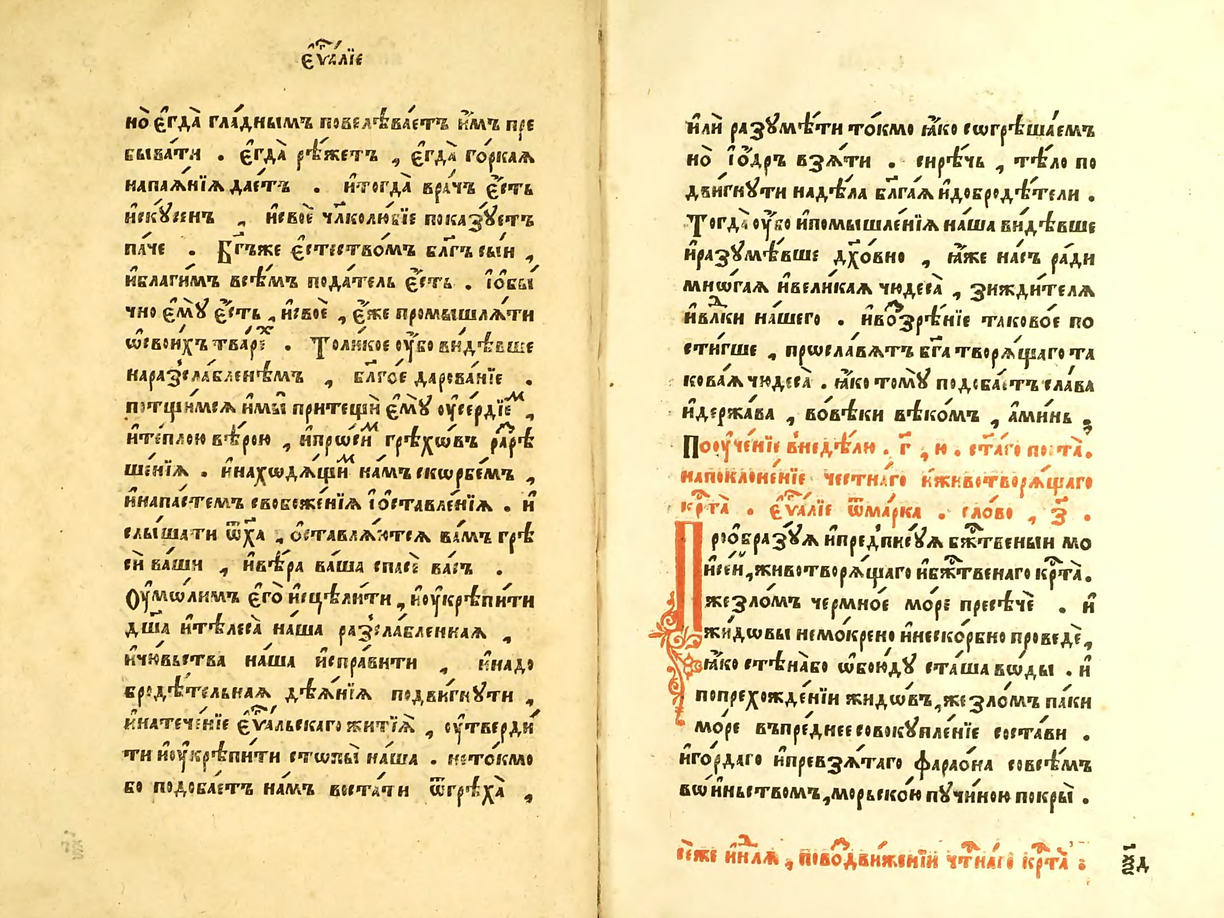 єѵ҃алїе
но̀ є҆гда̀ гла́днымъ повелѣва́етъ и҆̀мъ пре
быва́ти . є҆гда̀ рѣ́жетъ , є҆гда̀ го́ркаѧ
напаѧ҆́нїѧ дае́тъ . и҆тогда̀ вра́чь є҆́сть
и҆ску́сенъ , и҆своѐ чл҃колю́бїе показꙋ́етъ
па́че . Бг҃ъже є҆стество́мъ бл҃гъ сы́и ,
и҆благи́мъ всѣ́мъ пода́тель є҆́сть . і҆ѻ҆бы́
чно є҆мꙋ̀ є҆́сть , и҆своѐ , є҆́же промышлѧ́ти
ѡ҆свои́хъ тва́рех . Толи́кое ᲂу҆̀бо ви́дѣвше
наразсла́бленѣмъ , бл҃го́е дарова́нїе .
потщи́мсѧ и҆мы̀ притещѝ є҆мꙋ̀ ᲂу҆се́рдїем ,
и҆те́плою вѣ́рою , и҆про́сѝм грѣхо́въ разрѣ
ше́нїѧ . и҆находѧ́щим на́мъ ско́рбемъ ,
и҆напа́стемъ свобоже́нїѧ і҆ѻ҆ставле́нїѧ . и҆
слы́шати ѿ хⷭ҇а , ѻ҆ставлѧ́ютсѧ ва́мъ грѣ
сѝ ва́ши , и҆вѣ́ра ва́ша спасѐ ва́съ .
Оу҆мо́лимъ є҆го̀ и҆сцѣли́ти , и҆ᲂу҆крѣпи́ти
дш҃а и҆тѣлеса̀ на́ша разсла́бленнаѧ ,
и҆чю́вьства на́ша и҆спра́вити , и҆надо
бродѣ́тельнаѧ дѣѧ́нїѧ подви́гнꙋти ,
и҆натече́нїе є҆ѵⷢ҇альскаго житїѧ̀ , ᲂу҆тверди́
ти и҆ᲂу҆крѣпи́ти стопы̀ на́ша . нето́кмо
бо подоба́етъ на́мъ воста́ти ѿ грѣха̀ ,
и҆лѝ разꙋмѣ́ти то́кмо ꙗ҆́ко согрѣша́емъ
но̀ і҆ѻ҆́дръ взѧ́ти . си́рѣчь , тѣ́ло по
дви́гнꙋти надѣ́ла бл҃га́ѧ и҆добродѣ́тели .
Тогда̀ ᲂу҆́бо и҆помышле́нїѧ на́ша ви́дѣвше
и҆разꙋмѣ́вше дх҃о́вно , ꙗ҆́же на́съ ра́ди
мно́гаѧ и҆вели́каѧ чюдеса̀ , зижди́телѧ
и҆влⷣки на́шего . и҆возрѣ́нїе таково́е по
сти́гше , просла́вѧтъ бг҃а творѧ́щаго та
кова́ѧ чюдеса̀ . ꙗ҆́ко томꙋ̀ подоба́етъ сла́ва
и҆держа́ва , во́вѣки вѣко́мъ , а҆ми́нь ;
Поᲂуче́нїе внедѣ́лю . г҃ , ю . ст҃а́го поста̀ .
напоклоне́нїе че́стна́го и҆животворѧ́щаго
крⷭ҇та̀ . є҆ѵⷢ҇алїе ѿ ма́рка . сло́во , з҃ .
Прѻѡ҆бразꙋѧ и҆предпи́сꙋѧ бжⷭ҇твеныи мо
и҆се́и , животворѧ́щаго и҆бжⷭ҇твенаго крⷭ҇та̀ .
жезло́мъ чермно́е мо́ре пресѣчѐ . и҆
жи́довы немо́крено и҆неско́рбно проведѐ ,
ꙗ҆́ко стѣна̀бо ѡ҆бою́дꙋ ста́ша во́ды . и҆
попрехожде́нїи жидо́въ , жезло́мъ па́ки
мо́ре въпре́днее совокꙋпле́нїе соста́ви .
и҆го́рдаго и҆превзѧ́таго фарао́на совсѣ́мъ
во́иньствомъ , морьско́ю пꙋчи́ною покры̀ .
се́же и҆нлⷣѧ , повоздвиже́нїи чтⷭ҇на́го крⷭ҇та̀ :